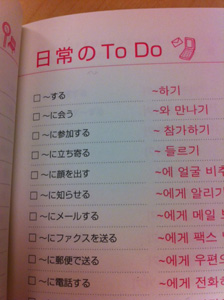 日常の To Do
□ ～する ～하기
□ ～に会う ～와 만나기
□ ～に参加する ～ 참가하기
□ ～に立ち寄る ～ 들르기
□ ～に顔を出す ～에 얼굴 비추
□ ～に知らせる ～에게 알리기
□ ～にメールする ～에게 메일
□ ～にファクスを送る ～에게 팩스
□ ～に郵便で送る ～에게 우편으
□ ～に電話する ～에게 전화